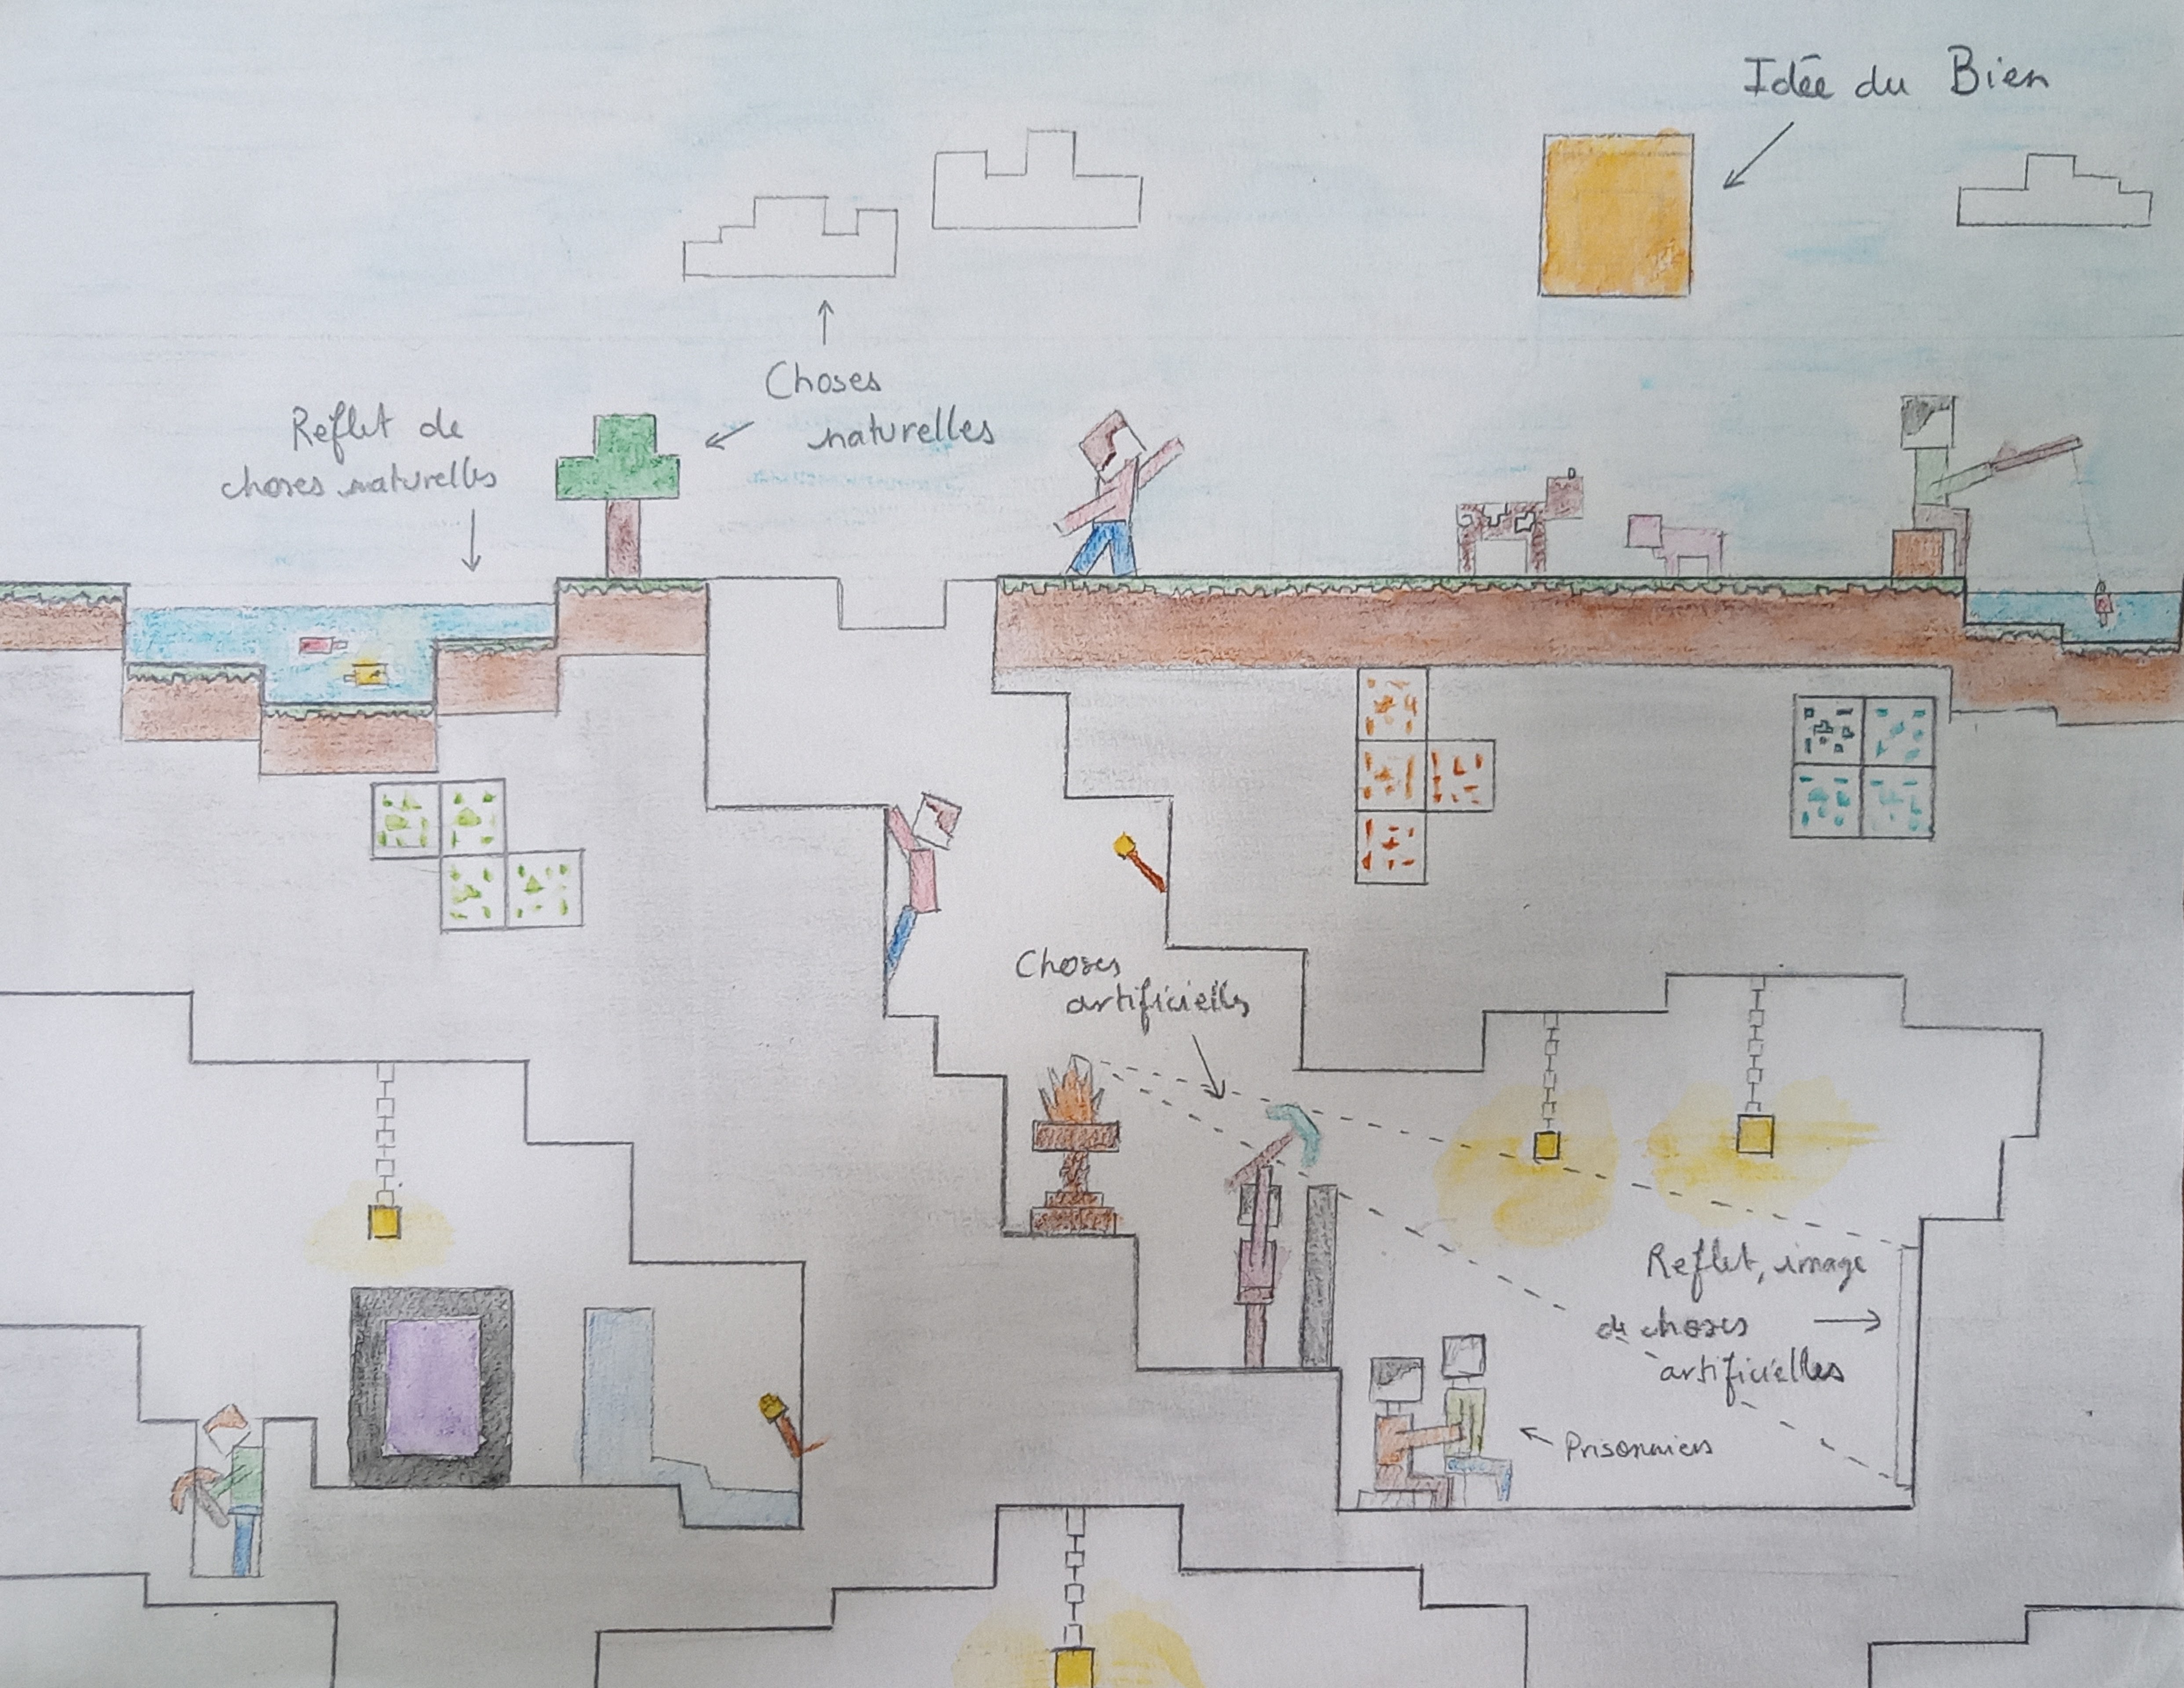 Idée du Bien
Choses
naturelles
Reflet de
choses naturelles
Choses
artificielles
Reflet, image
de choses
artificielles
Prisonniers